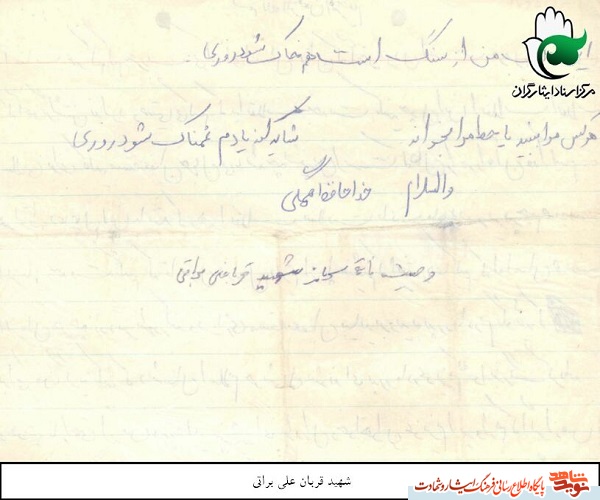 من از سنگ است هم خاک شود روزی
مرکز اسناد ایثارگران
هرکس مرا بیند یا خط مرا بخواند شاید که از یادم غمناک شود روزی
والسلام خداحافظ همگی
وصیت نامه سرباز شهید قربانعلی براتی
شهید قربان علی براتی
نوید شاهد
پایگاه اطلاع رسانی فرهنگ ایثار و شهادت